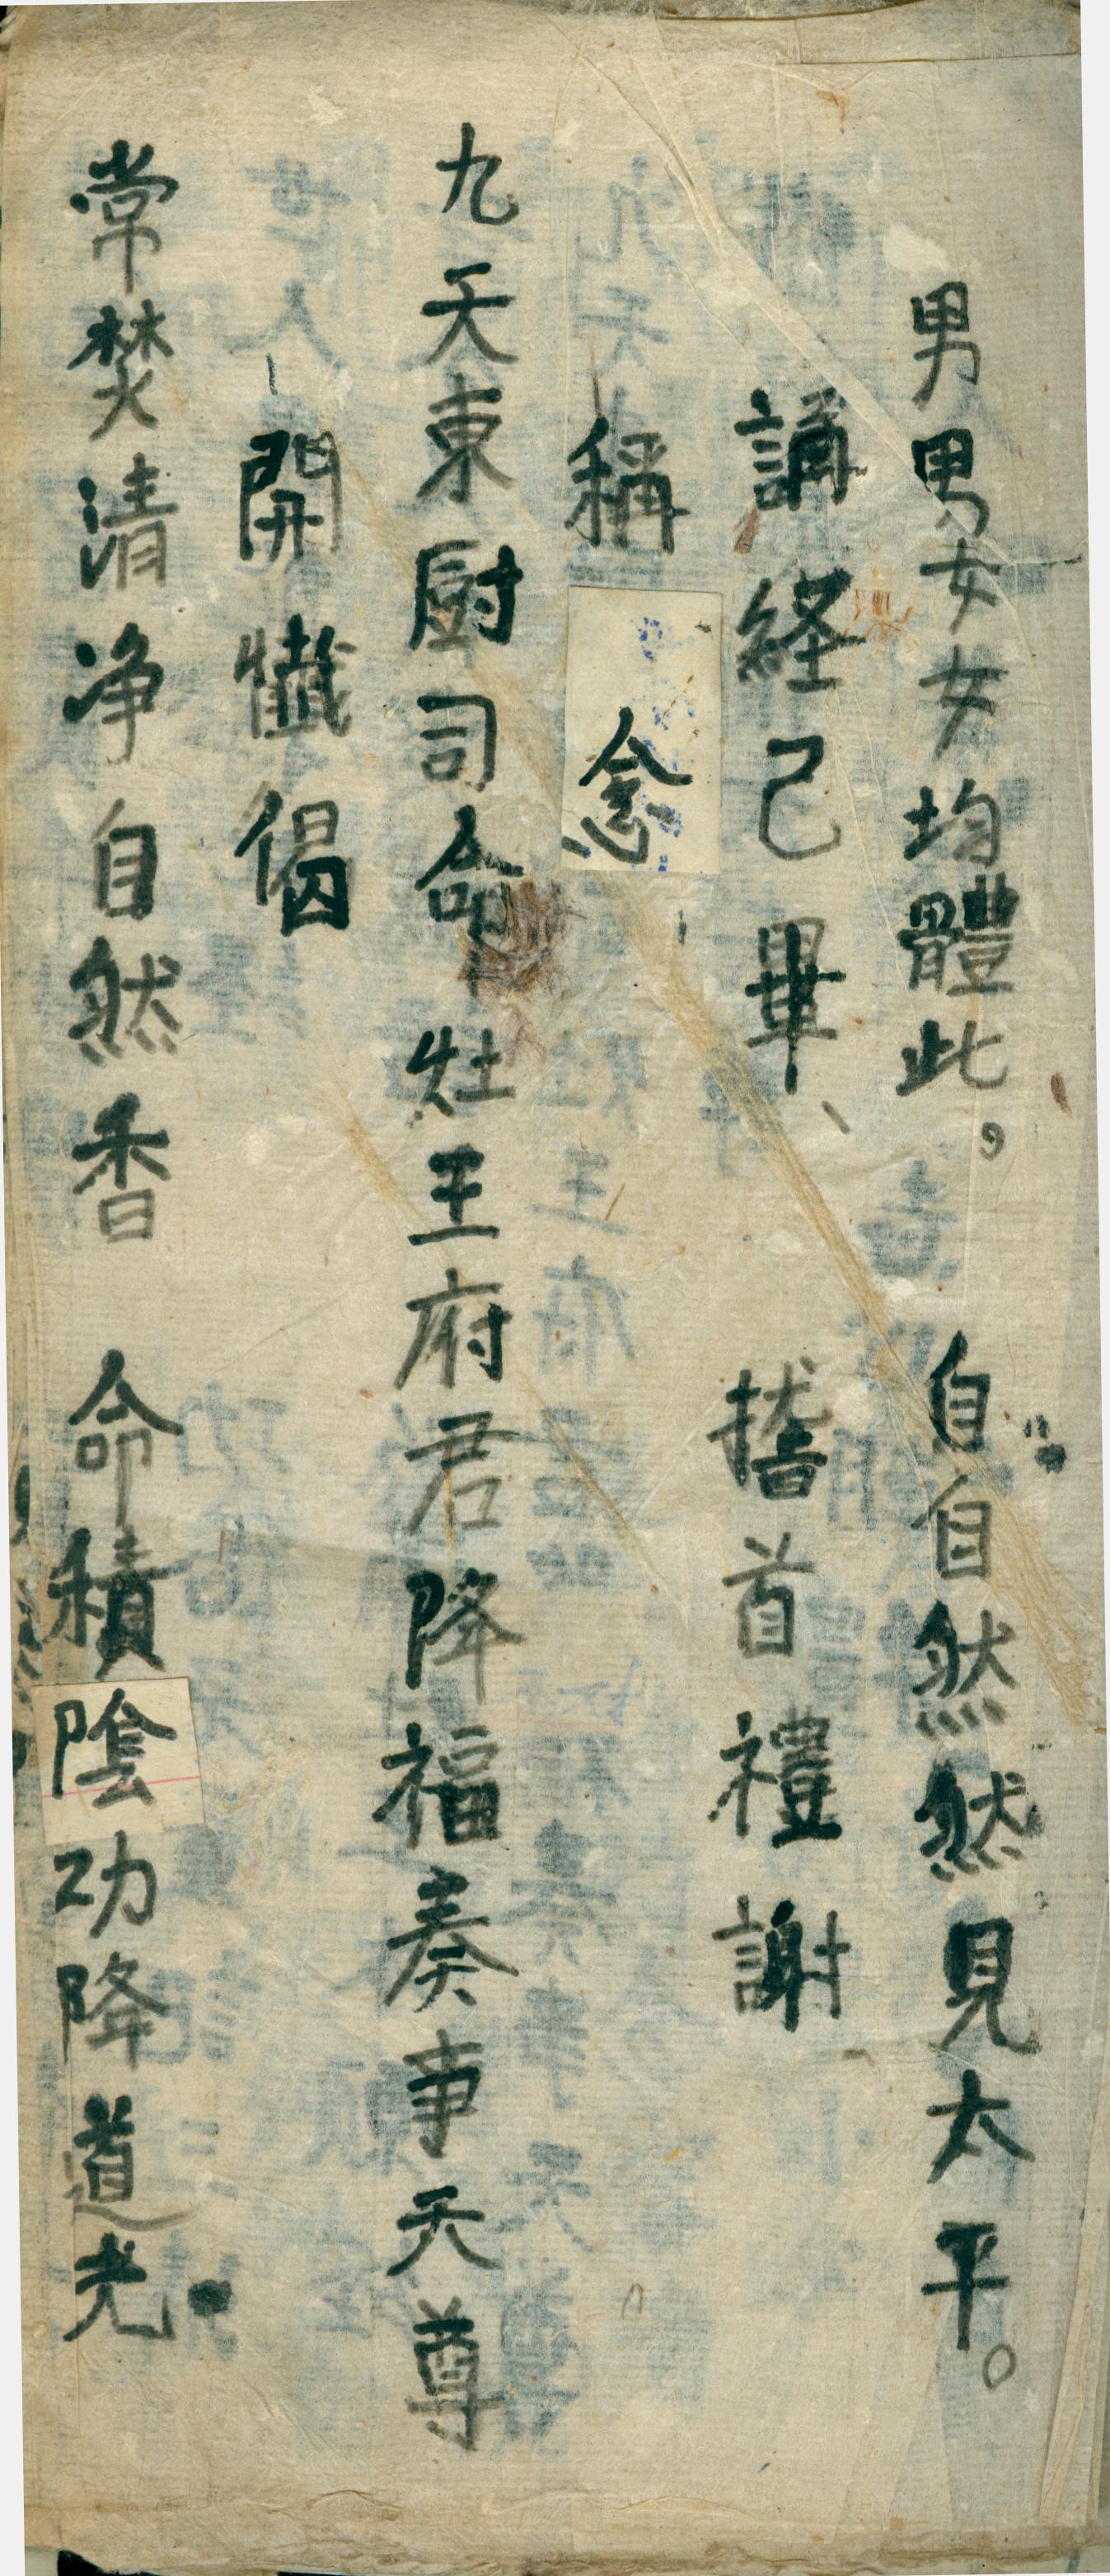 男男女女均體此，自自然然見太平。
誦経己畢、 𢲸首禮謝
稱念
九天東厨司命灶王府君降福奏事天尊
開懺偈
常焚清净自然香 命積陰功降道光